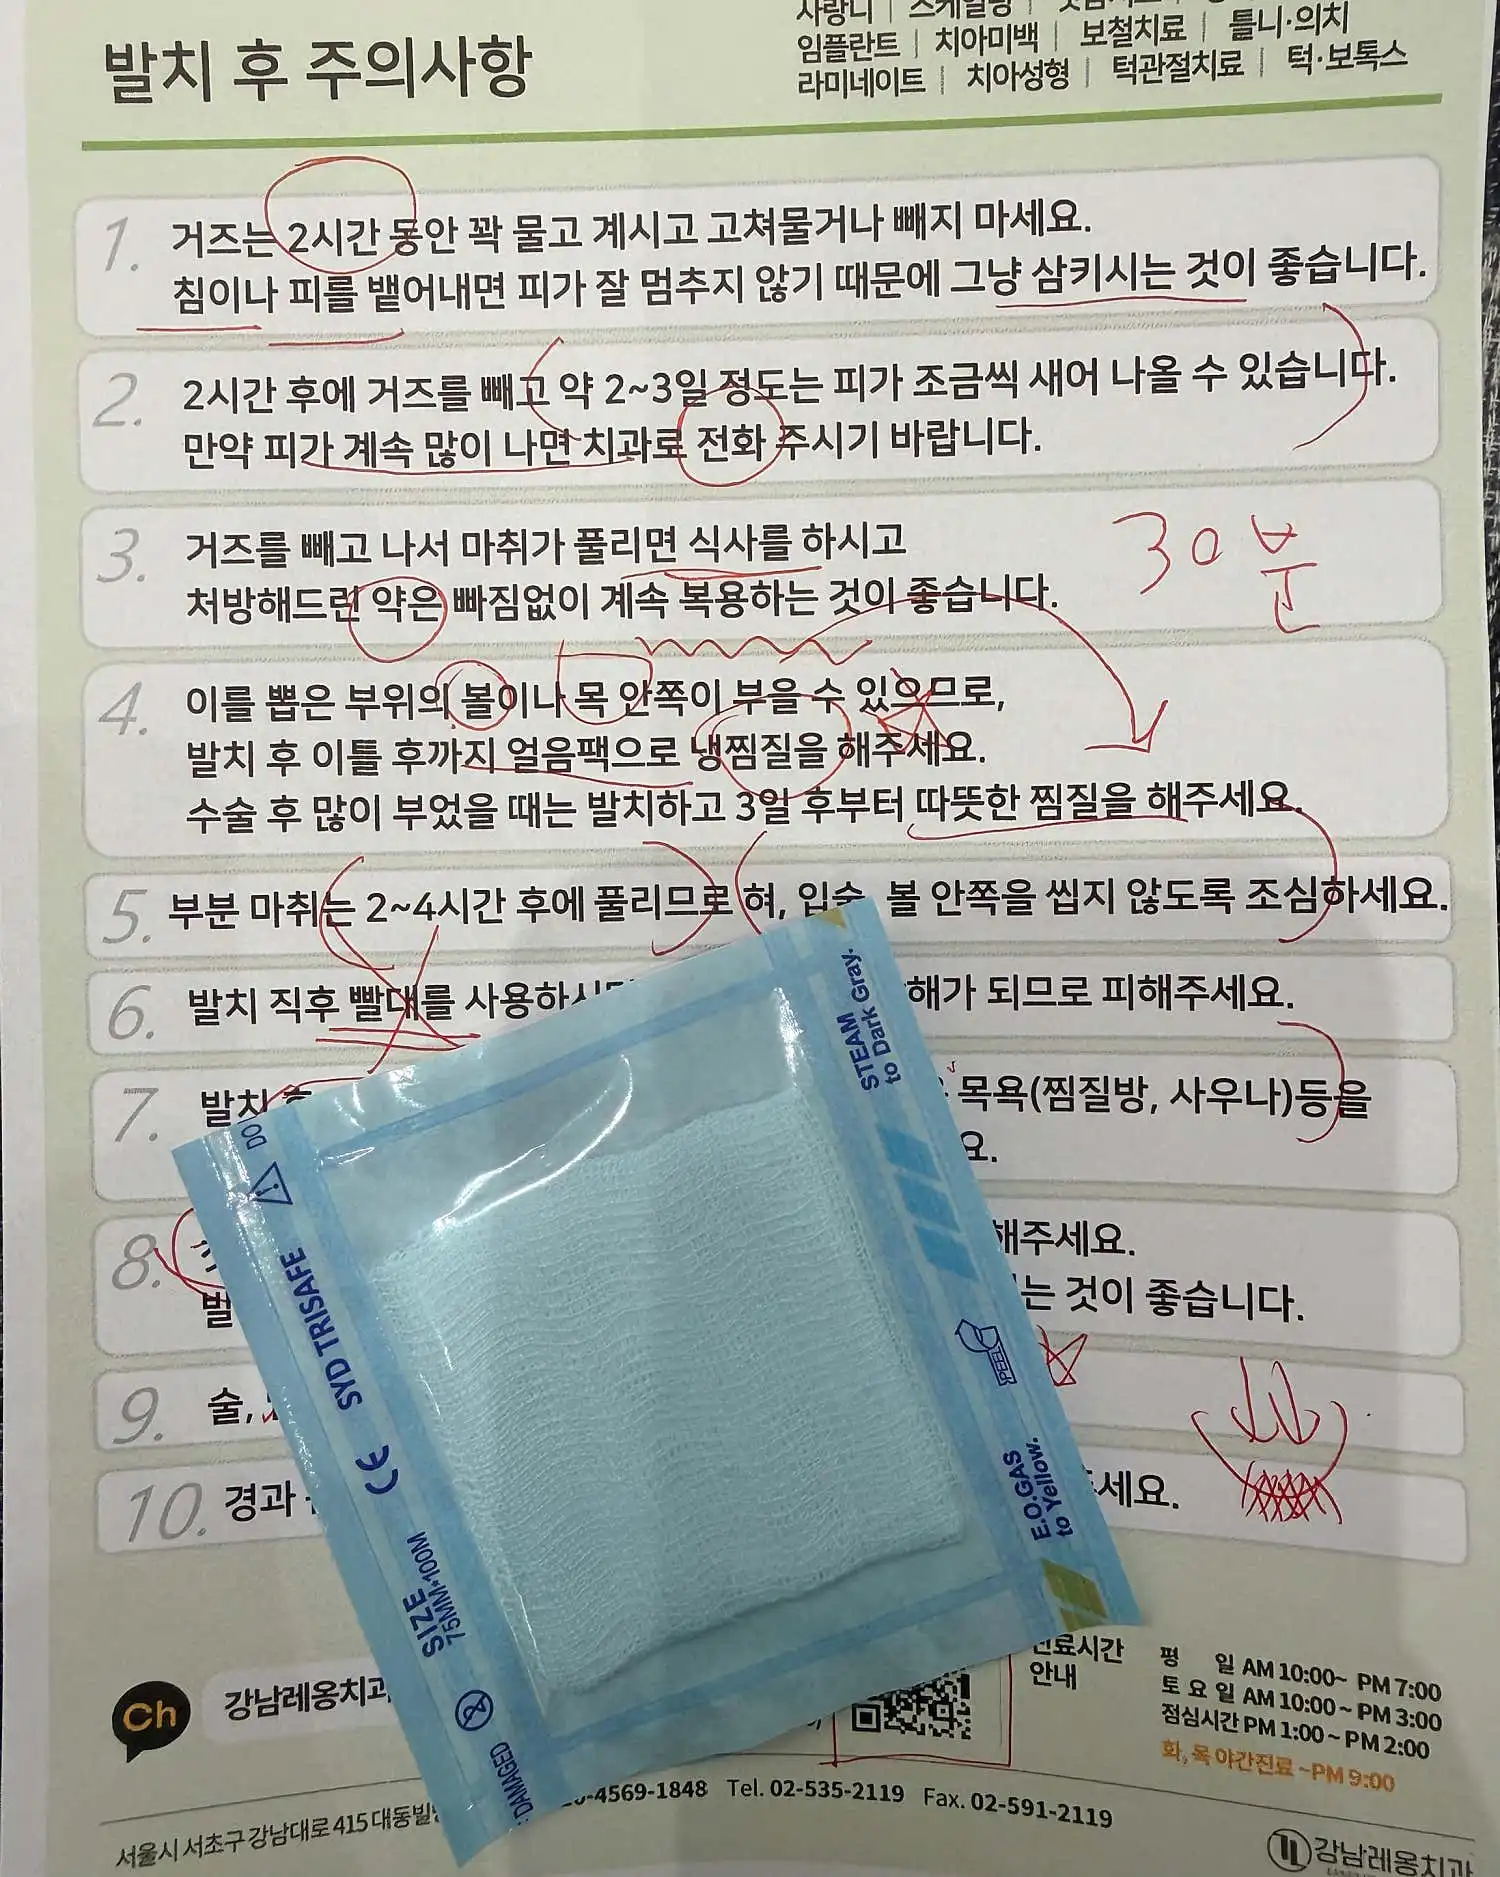 임플란트 | 치아미백 | 보철치료 | 틀니·의치
라미네이트 | 치아성형 | 턱관절치료 | 턱·보톡스
발치 후 주의사항
1. 거즈는 2시간 동안 꽉 물고 계시고 고쳐물거나 빼지 마세요.
침이나 피를 뱉어내면 피가 잘 멈추지 않기 때문에 그냥 삼키시는 것이 좋습니다.
2. 2시간 후에 거즈를 빼고 약 2~3일 정도는 피가 조금씩 새어 나올 수 있습니다.
만약 피가 계속 많이 나면 치과로 전화 주시기 바랍니다.
3. 거즈를 빼고 나서 마취가 풀리면 식사를 하시고
처방해드린 약은 빠짐없이 계속 복용하는 것이 좋습니다.
30분
4. 이를 뽑은 부위의 볼이나 목 안쪽이 부을 수 있으므로,
발치 후 이틀 후까지 얼음팩으로 냉찜질을 해주세요.
수술 후 많이 부었을 때는 발치하고 3일 후부터 따뜻한 찜질을 해주세요.
5. 부분 마취는 2~4시간 후에 풀리므로 혀, 입술, 볼 안쪽을 씹지 않도록 조심하세요.
6. 발치 직후 빨대를 사용하시 해가 되므로 피해주세요.
7. 발치 목욕(찜질방, 사우나)등을
요.
8. 해주세요.
는 것이 좋습니다.
9. 술,
10. 경과 세요.
STEAM
to Dark Gray.
DO
SYD TRISAFE
CE
SIZE
75MM*100M
DAMAGED
PEEL
E.O.GAS
to Yellow.
Ch 강남레옹치과
진료시간
안내
평 일 AM 10:00~ PM 7:00
토 요 일 AM 10:00 ~ PM 3:00
점심시간 PM 1:00 ~ PM 2:00
화, 목 야간진료 ~PM 9:00
서울시 서초구 강남대로 415 대동빌 4569-1848 Tel. 02-535-2119 Fax. 02-591-2119
강남레옹치과